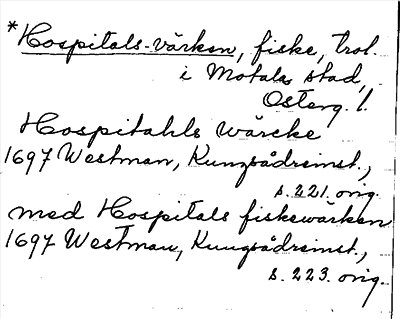 *Hospitals-värken, fiske, trol.
i Motala stad,
Österg. l.
Hospitahls wärcke
1697 Westman, Kungsådreinst.,
s. 221. orig.
med Hospitals fiskewärken
1697 Westman, Kungsådreinst.,
s. 223. orig.